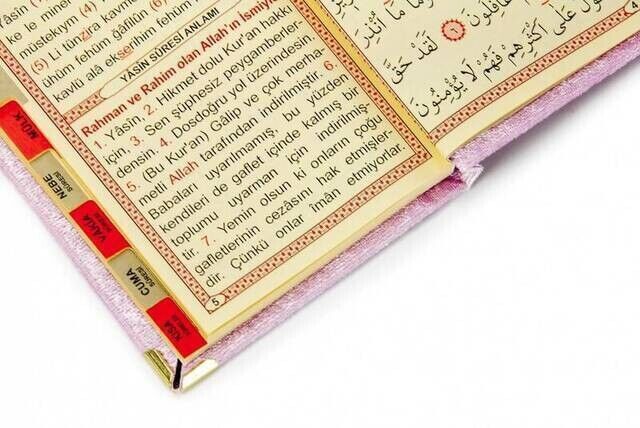 ze le minel
müstekıym (4)
(5) Li tünzira kavmen
ühüm fehüm ğafilûn (6)
kavlü alâ ekserihim fehüm
YÂSİN SÛRESİ ANLAMI
Rahman ve Rahim olan Allah'ın İsmiyle
1. Yâsîn, 2. Hikmet dolu Kur'an hakkı
için, 3. Sen şüphesiz peygamberler-
densin. 4. Dosdoğru yol üzerindesin.
5. (Bu Kur'an) Gâlip ve çok merha-
metli Allah tarafından indirilmiştir. 6.
Babaları uyarılmamış, bu yüzden
kendileri de gaflet içinde kalmış bir
toplumu uyarman için indirilmiş-
tir. 7. Yemin olsun ki onların çoğu
gafletlerinin cezasını hak etmişler-
dir. Çünkü onlar îmân etmiyorlar.
5
غَافِلُونَ ﴿٦﴾ لَقَدْ حَقَّ
الْقَوْلُ عَلَى أَكْثَرِهِمْ فَهُمْ لَا يُؤْمِنُونَ
MÜLK
NEBE
SÛRESİ
VÂKIA
SÛRESİ
CUMA
SÛRESİ
KISA